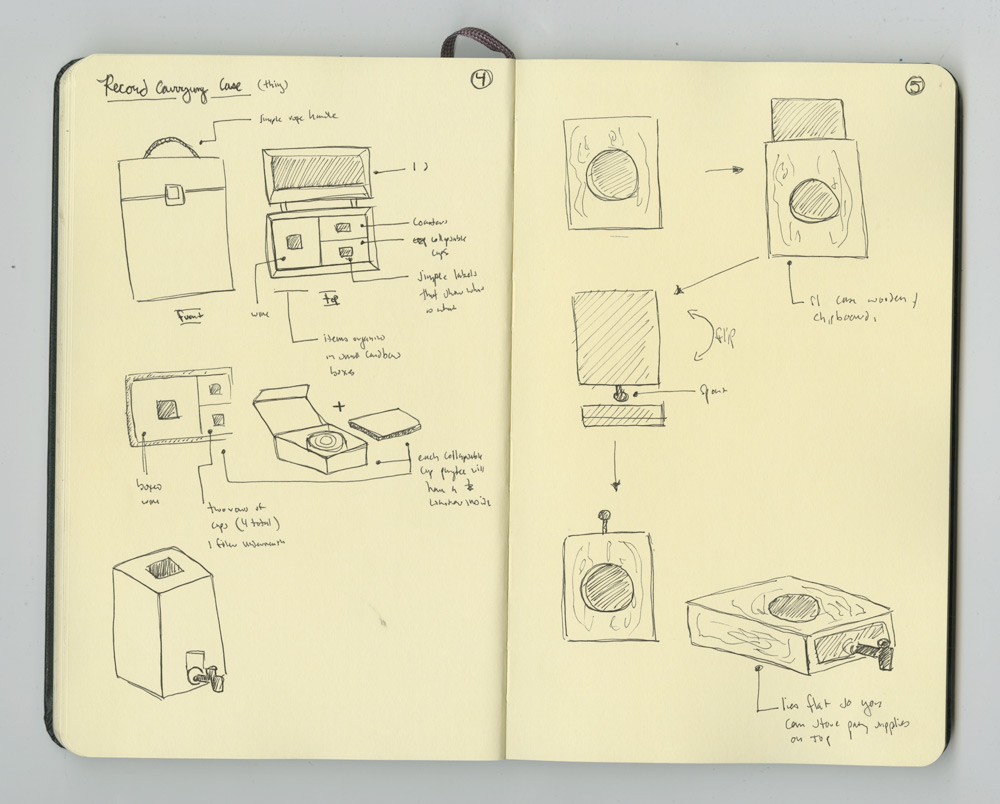 Record Carrying Case (thin)
4
simple rope handle
coasters
collapsable
cups
simple labels
that show what
is what
Front
top
wine
items organized
in small cardboard
boxes
+
boxed
wine
two rows of
cups (4 total)
1 filter underneath
each collapsable
cup will
have a
inside
5
case wooden /
chipboard.
flip
Spout
lies flat so you
can store party supplies
on top